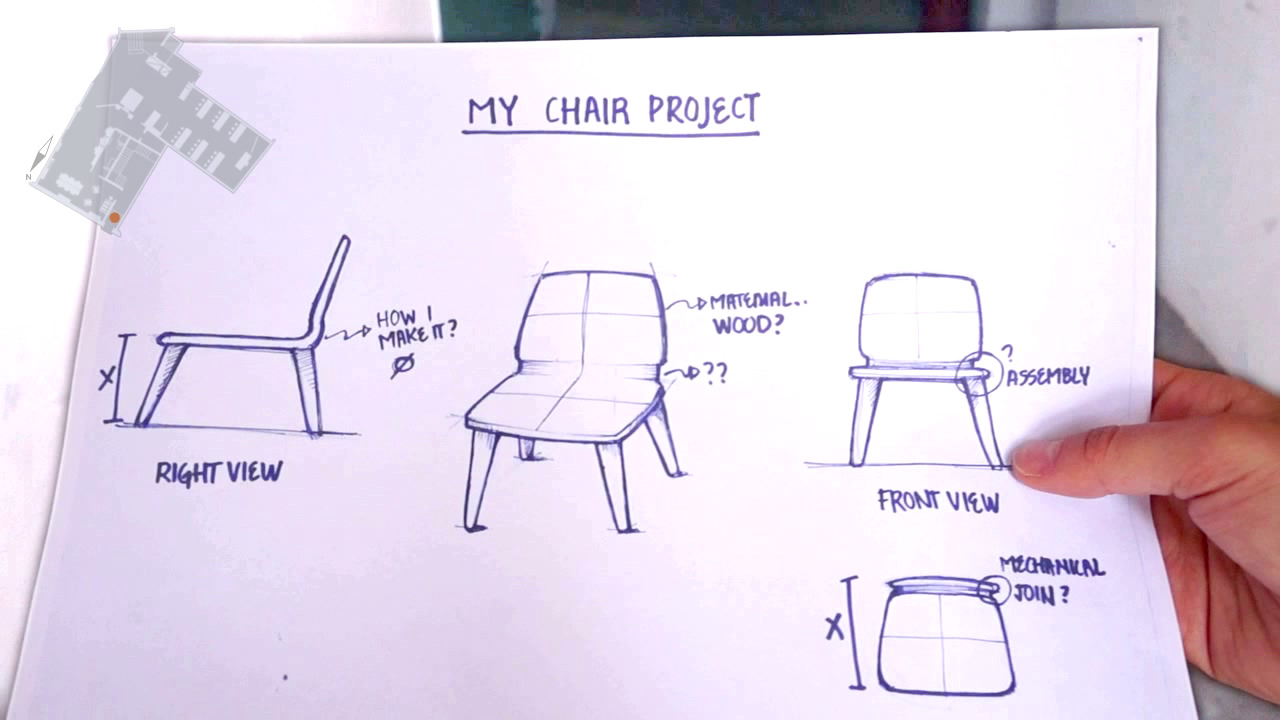 MY CHAIR PROJECT
N
HOW I
MAKE IT?
X
RIGHT VIEW
MATERIAL..
WOOD?
??
?
ASSEMBLY
FRONT VIEW
MECHANICAL
JOIN?
X